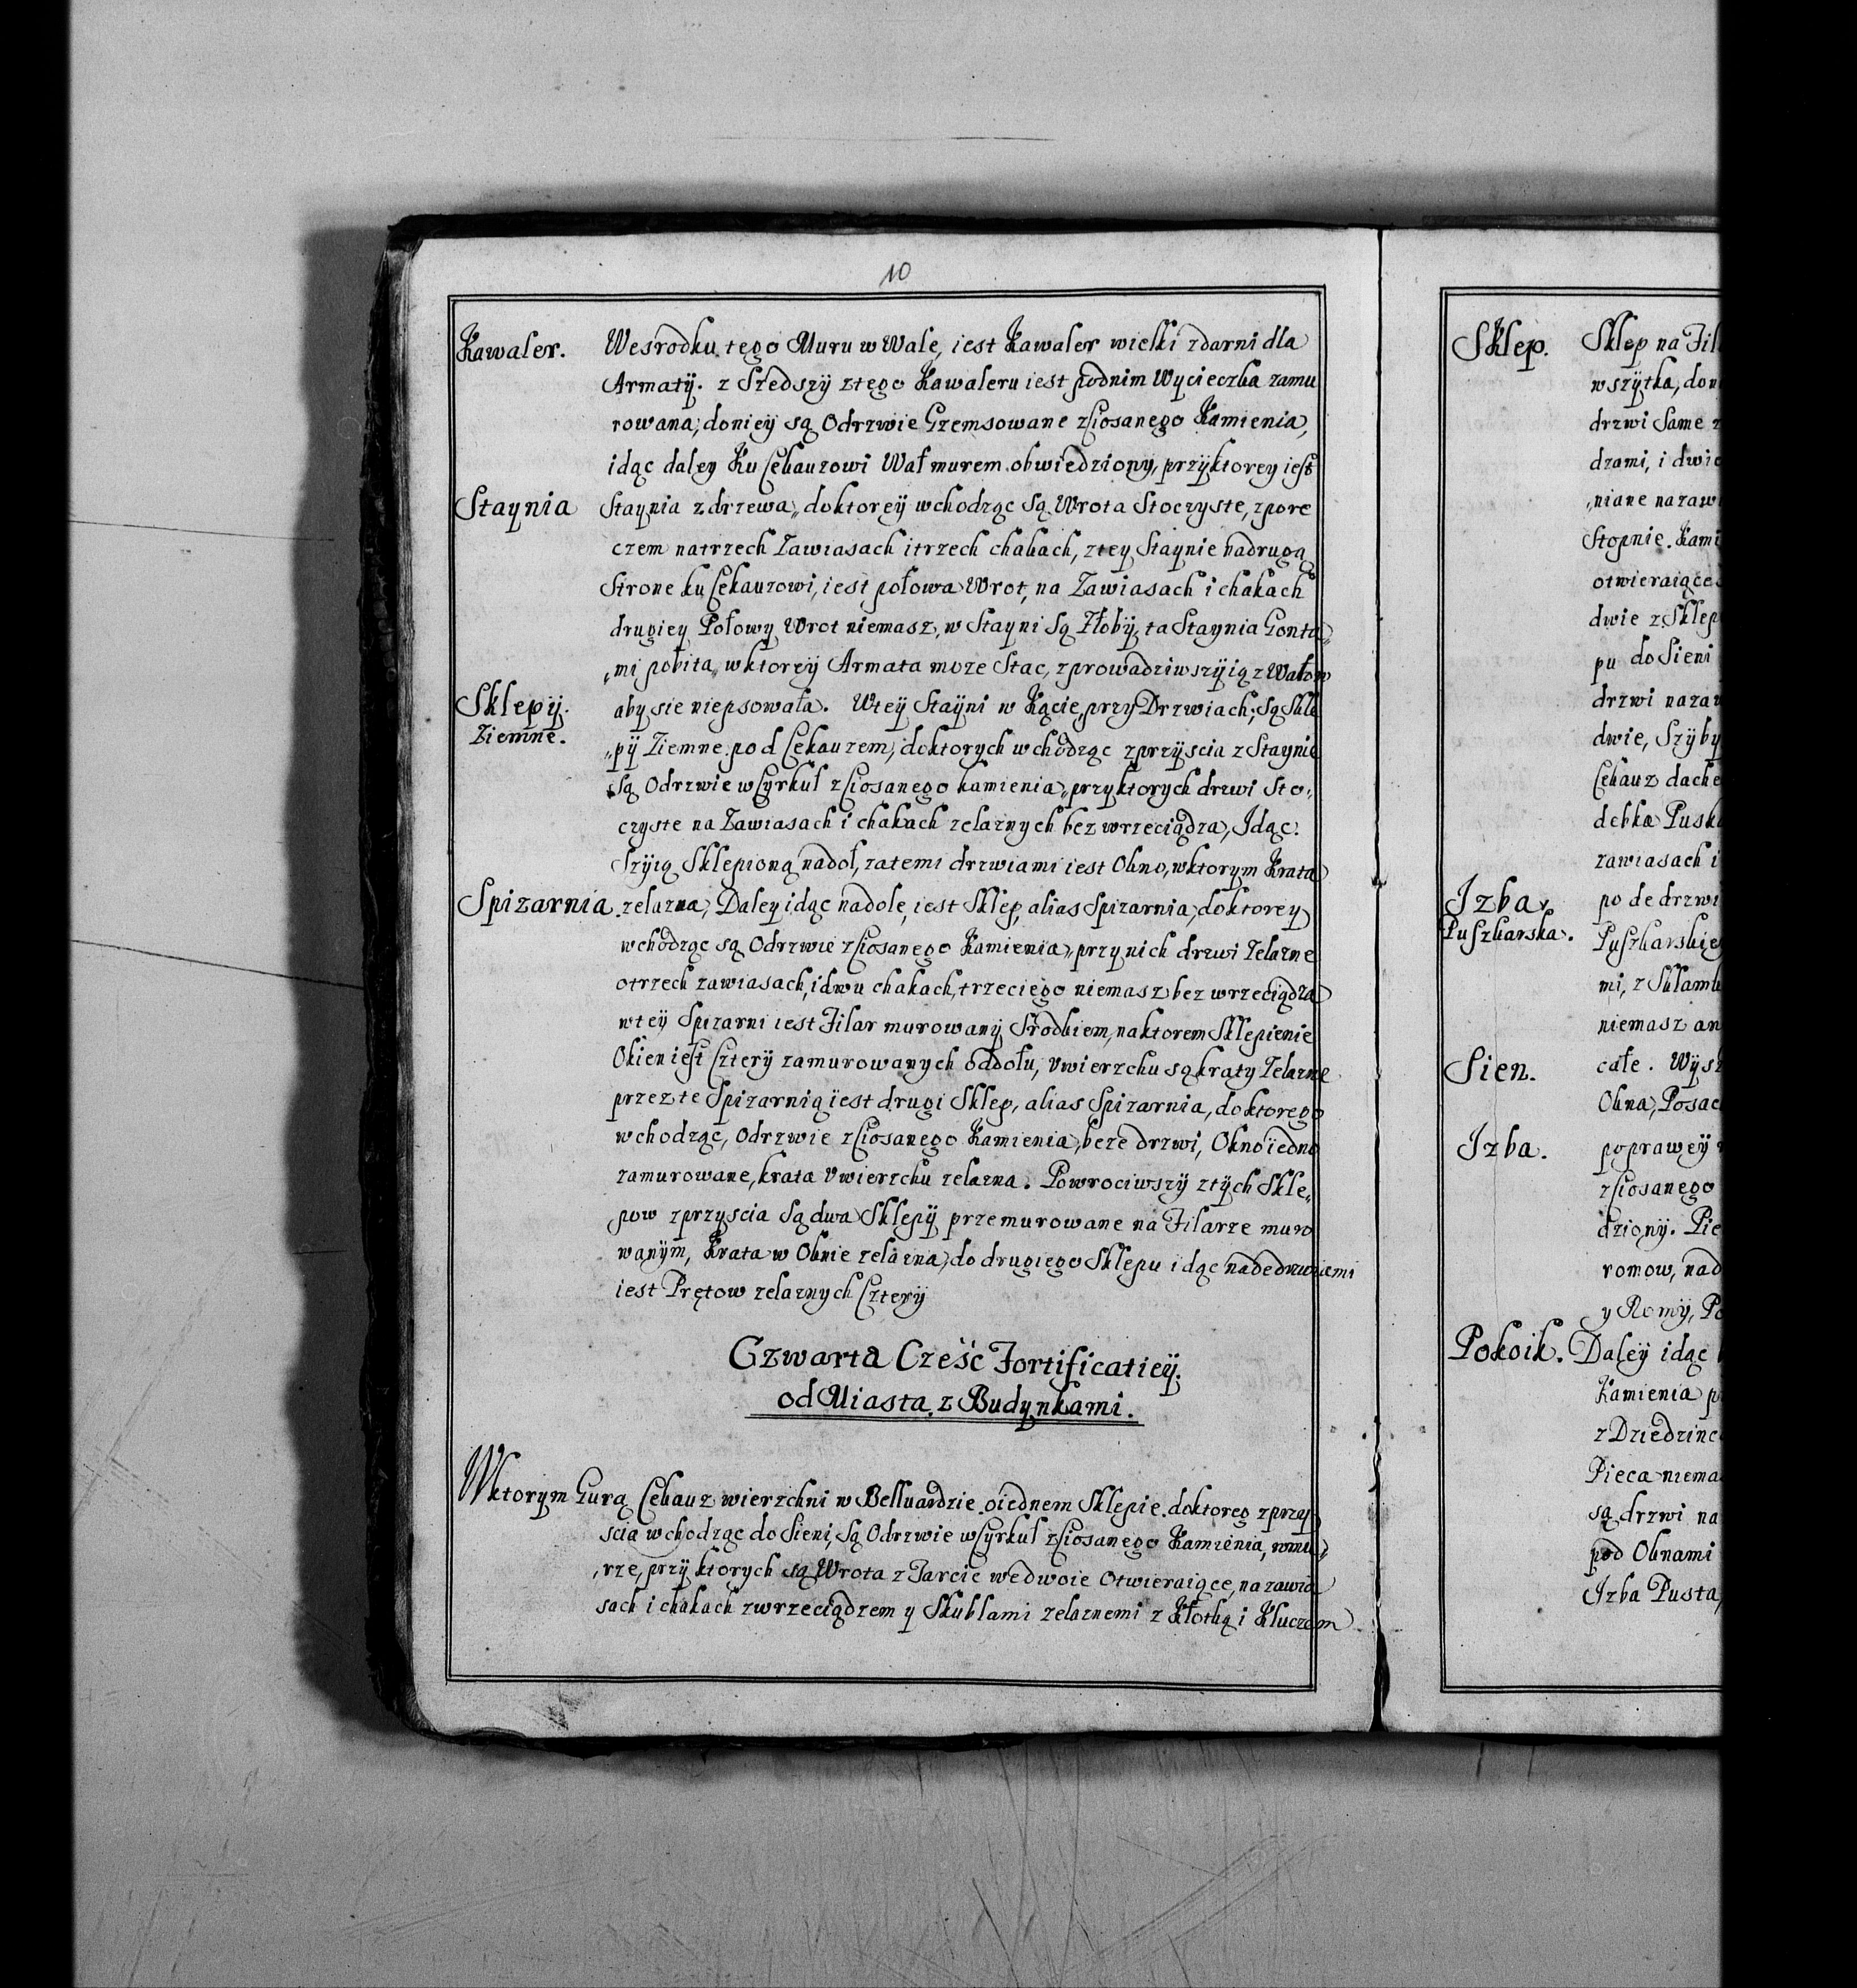 10
Kawaler. Wesrodku tego Muru w Wale, iest Kawaler wielki zdarni dla
Armatÿ. z Szedszÿ ztego Kawaleru iest podnim Wycieczka zamu
rowana, doniey są Odrzwie Gzemsowane zCiosanego Kamienia,
idąc daley Ku Cekauzowi Wał murem obwiedziony, przÿktorey iest
Staynia Staynia z drzewa„ doktoreÿ wchodząc są Wrota Stoczyste, zpore
czem natrzech Zawiasach itrzech chakach, ztey Staynie nadrugą
Strone ku Cekauzowi, iest połowa Wrot, na Zawiasach i chakach
drugiey Połowy Wrot niemasz, w Stayni są Złobÿ, ta Staynia Gonta„
„mi pobita, wktoreÿ Armata moze Stac, zprowadziwszÿ ią z Wałow
Sklepÿ. Ziemne. aby sie niepsowała. Wteÿ Stayni w Kącie, przy Drzwiach, są Skle
„pÿ Ziemne pod Cekauzem, doktorych wchodząc zprzÿscia z Staynie
są Odrzwie wCyrkuł zCiosanego kamienia„ przyktorych drzwi Sto„
czyste na Zawiasach i chakach zelaznych bez wrzeciądza, Idąc
Szÿią Sklepioną nadoł, zatemi drzwiami iest Okno, wktorym Krata
Spizarnia. zelazna, Daley idąc nadole, iest Sklep, alias Spizarnia, doktorey
wchodząc są Odrzwie zCiosanego Kamienia„ przy nich drzwi Zelazne
otrzech zawiasach, i dwu chakach, trzeciego niemasz bez wrzeciądza
wteÿ Spizarni iest Filar murowanÿ Srodkiem, naktorem Sklepienie
Okien iest Czterÿ zamurowanych oddołu, Vwierzchu są kraty Zelazne
przez te Spizarnią iest drugi Sklep, alias Spizarnia, doktorego
wchodząc, Odrzwie zCiosanego Kamienia, beze drzwi, Okno iedno
zamurowane, krata Vwierzchu zelazna. Powrociwszÿ ztÿch Skle„
pow zprzyscia są dwa Sklepÿ przemurowane na Filarze muro
wanÿm, Krata w Oknie zelazna, do drugiego Sklepu idąc nadedrzwiami
iest Prętow zelaznych Czterÿ
Czwarta Cześc Fortificatieÿ.
od Miasta z Budynkami.
Wktorym Gurą Cekauz wierzchni w Belluardzie oiednem Sklepie doktoreg zprzy
scia wchodząc do Sieni, są Odrzwie wCyrkuł zCiosanego Kamienia, wmu„
„rze, przÿ ktorych są Wrota z Tarcic wedwoie Otwieraiące, na zawia
sach i chakach zwrzeciądzem y Skublami zelaznemi z Kłotką i Kluczem
Sklep. Sklep na Fil
wszÿtka, don
drzwi Same z
dzami, i dwie
„niane nazaw
Stopnie. Kami
otwieraiące
dwie z Sklep
pu do Sieni
drzwi nazaw
dwie, Szÿby
Cekauz dache
debka Pusk
zawiasach i
Izba Puszkarska. po de drzwi
Puszkarskie
mi, z Sklamk
niemasz an
Sien. całe. Wysz
Okna, Posac
Izba. poprawey
zCiosanego
dzionÿ. Pie
romow, nad
y Romÿ, Po
Pokoik. Daleÿ idąc
Kamienia p
z Dziedzinc
Pieca niema
są drzwi na
pod Oknami
Izba Pusta,